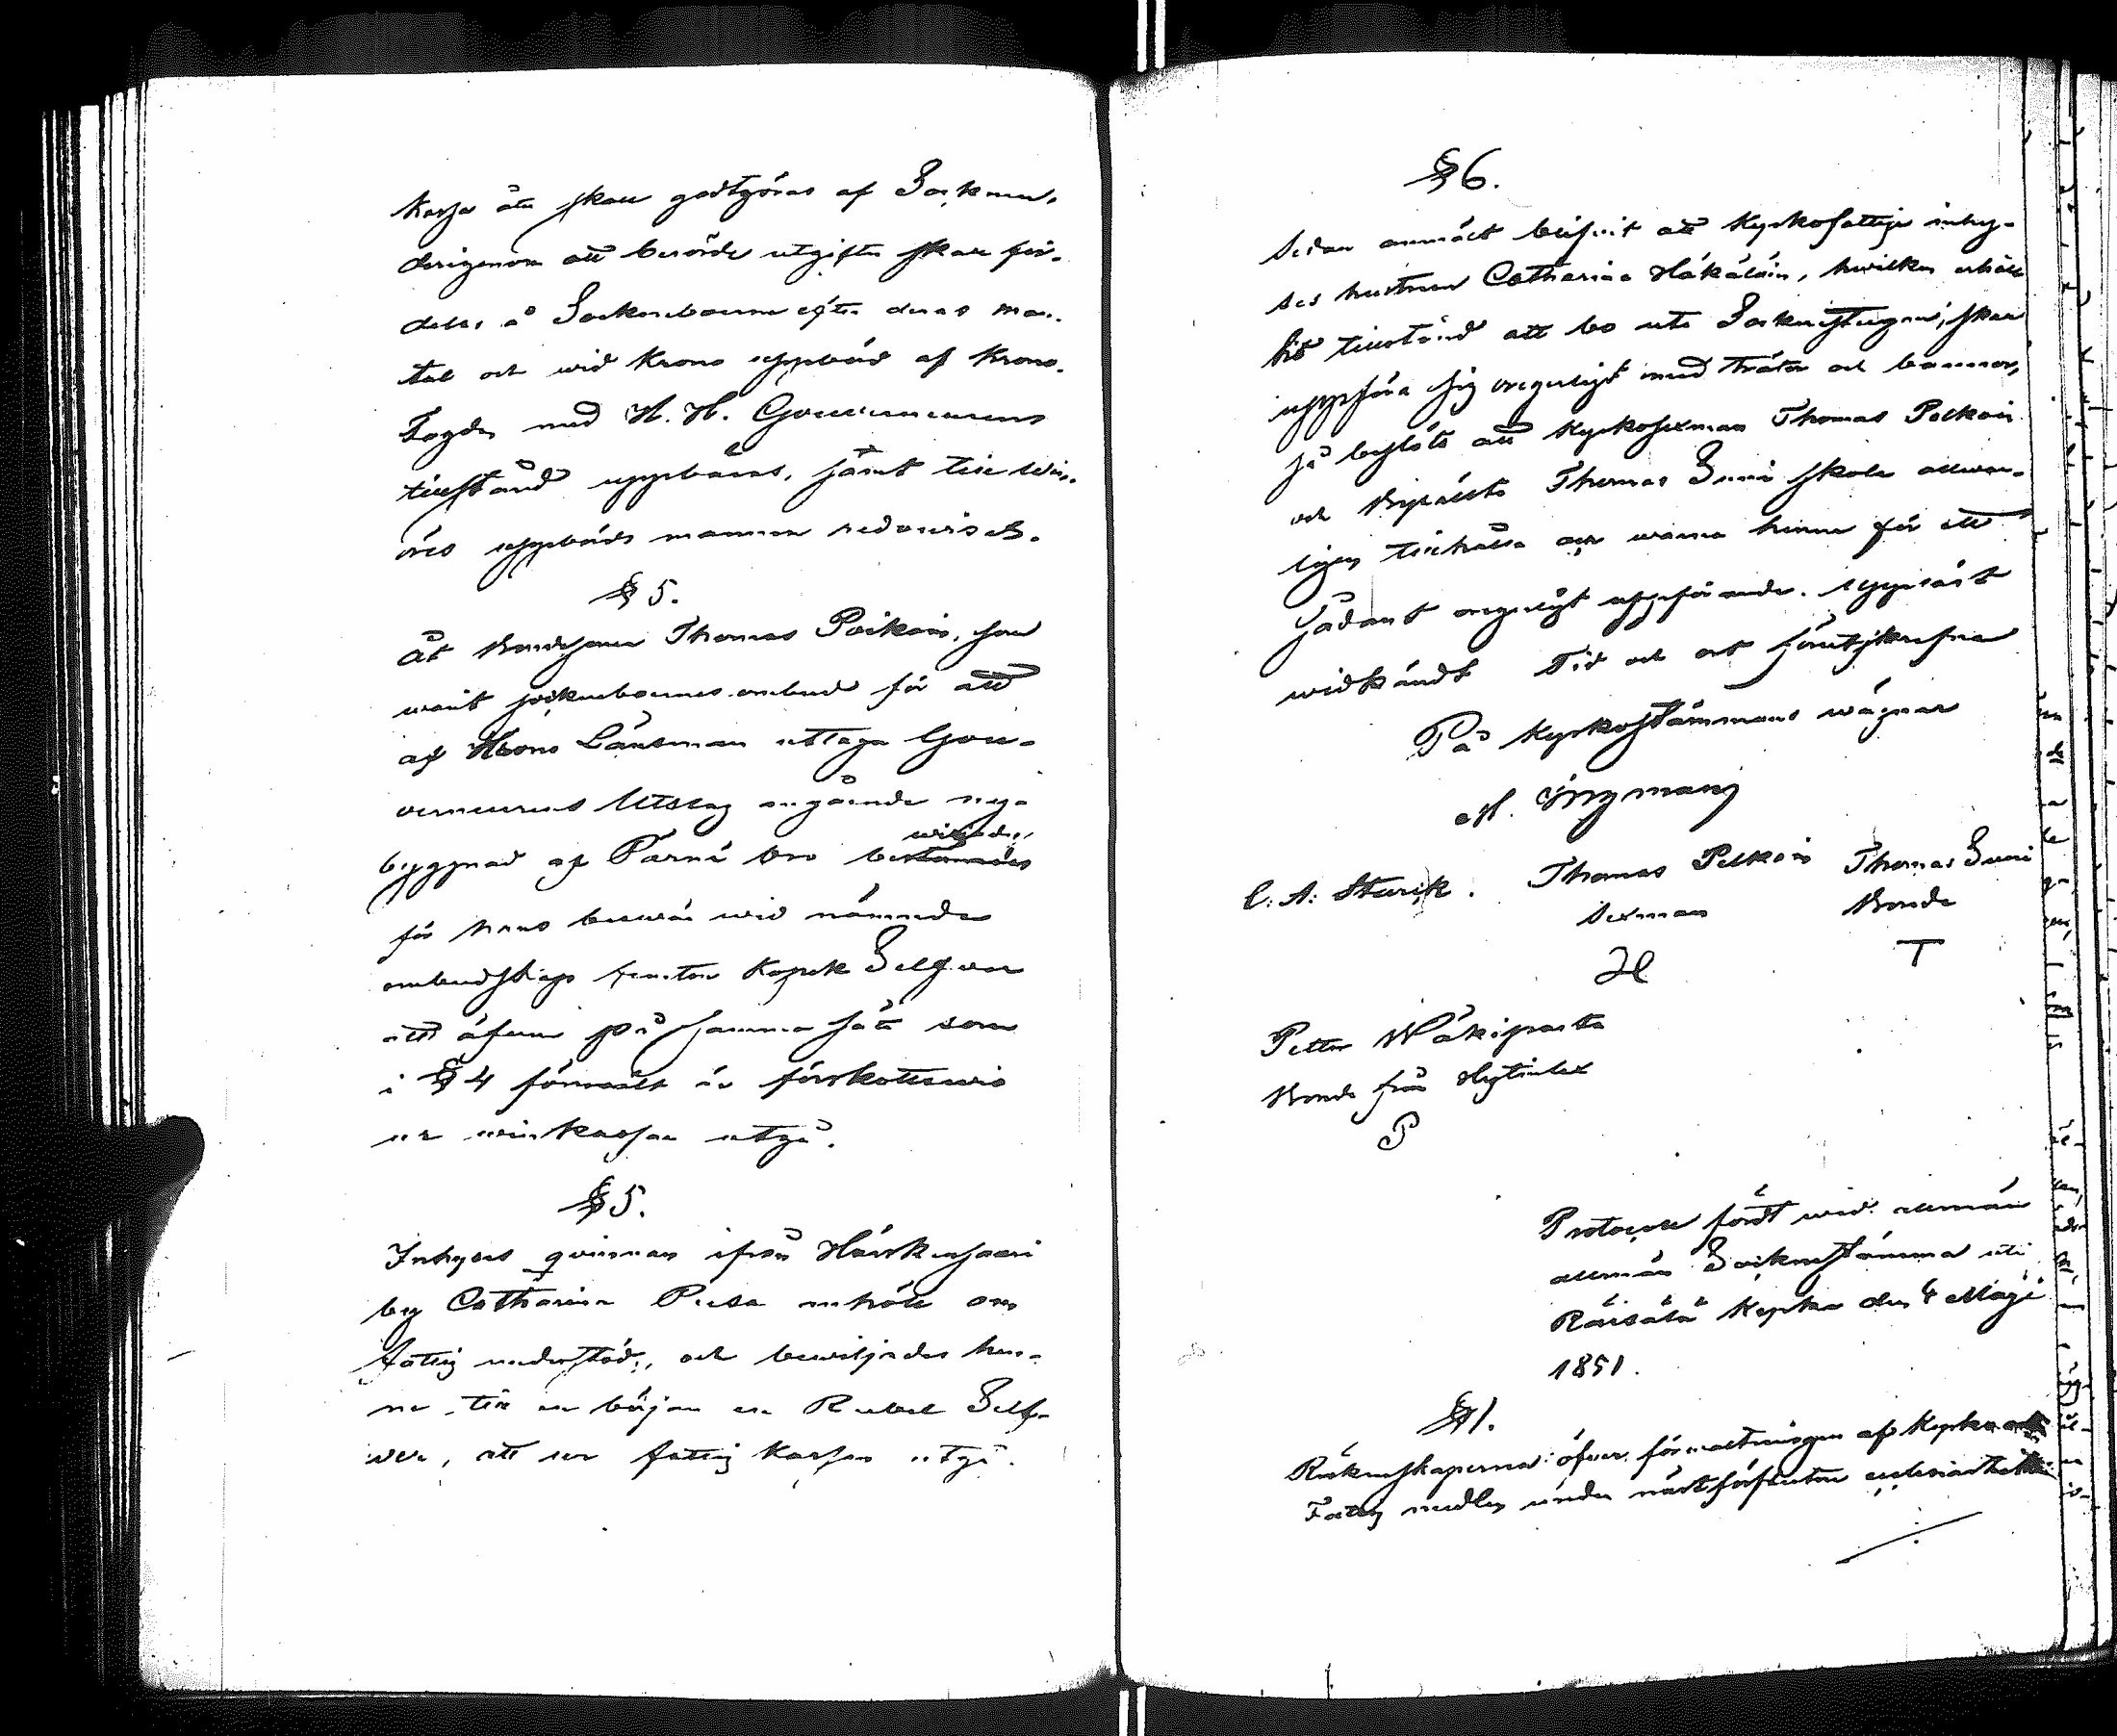 kassa åter skall godtgöras af Socknen,
derigenom att berörde utgifter skall för-
delas å Sockneboerne efter deras man-
tal och wid Krono uppbörd af Krono-
Fogden med H. H. Gouverneurens
tillstånd uppbäras, samt till
öres uppbörds mannen redovisas.
§ 5.
Åt Bondesonen Thomas Poikoin, som
warit sockneboernes ombud för att
af Krono Länsman uttaga Gou-
verneurens Utslag angående nya
byggnad af Pärnä bro bewiljades
för hans beswär wid nämnde
ombudskap femton Kopek Selfwer
att äfwen på samma sätt som
i § 4 förmält är förskottswis
ur winkassan utgå.
§ 5.
Inhyses qwinnan ifrån Härskensaari
by Catharina Pusa anhöll om
fattig understöd, och bewiljades hen-
ne till en början en Rubel Self-
wer, att ur fattig kassan utgå.
§ 6.
Sedan anmält blifwit att Kyrkofattige inhy-
ses hustrun Catharina Häkäläin, hwilken erhållit
tillstånd att bo uti Sockenstugan, skall
uppföra sig oregerligt med träta och bannor,
så beslöts att Kyrkosexman Thomas Polkoin
och Thomas Suni skola allwar-
ligen tilltala och warna henne för ett
sådant oregerligt uppförande. Uppläst
widkändt Tid och ort förutskrefne
På Kyrkostämmans wägnar
M. Ingman
C. A. Sturck. Thomas Polkoin Thomas Suni
Sexman Bonde
H T
Petter Wäkiparta
Bonde från Hytinlax
P
Protocoll fördt wid allmän
allmän Sockenstämma uti
Räisälä Kyrka den 4 Maji
1851.
§ 1.
Räkenskaperna öfwer förwaltningen af Kyrko
Fattig medlen under nästförflutne ecclesiastik